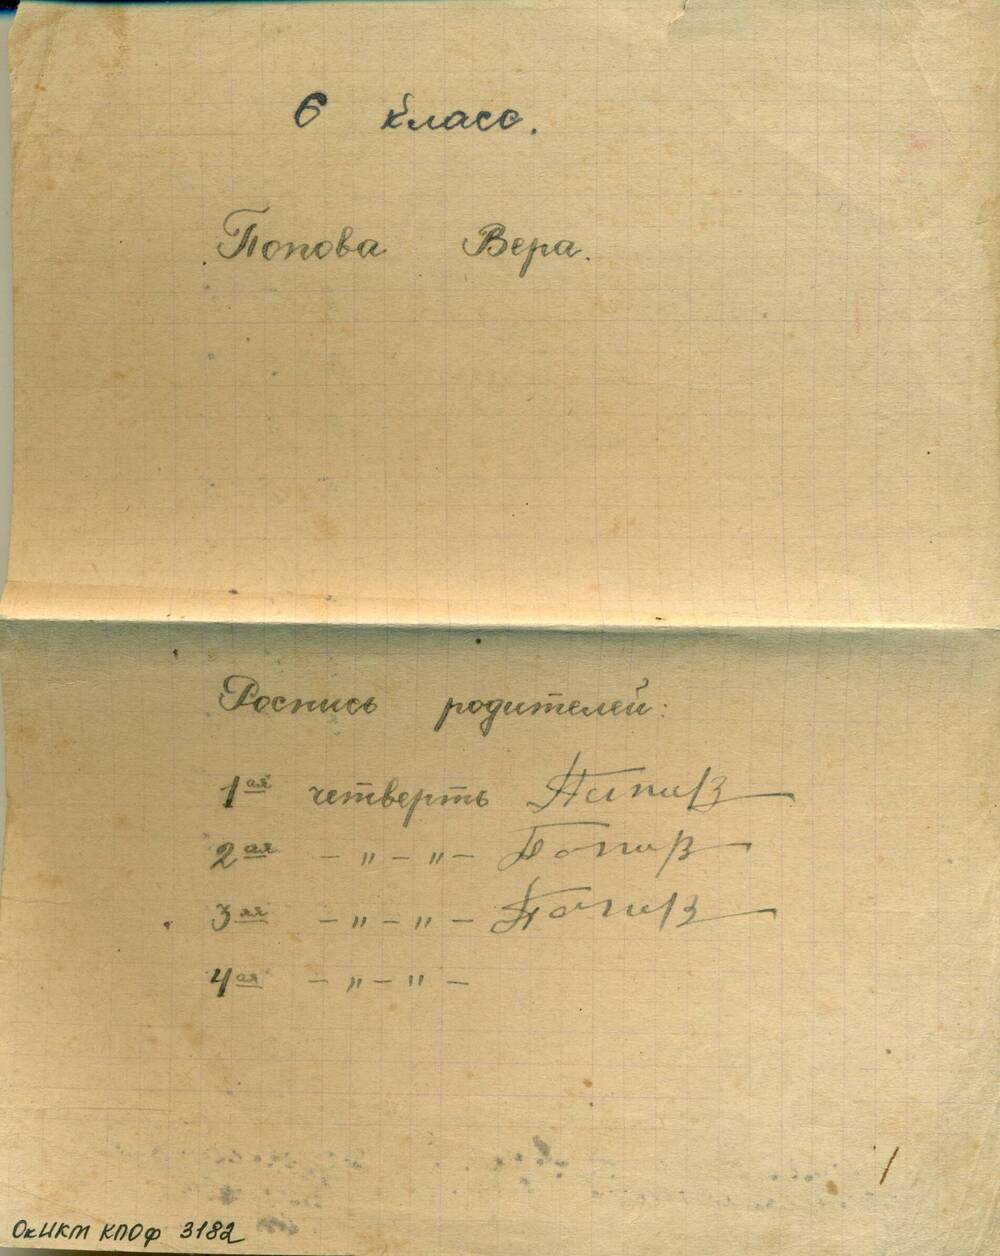 6 класс.
Попова Вера.
Роспись родителей:
1ая четверть Попов
2ая — " — " — Попов
3яя — " — " — Попов
4ая — " — " —
ОкИКМ КПОф 3182